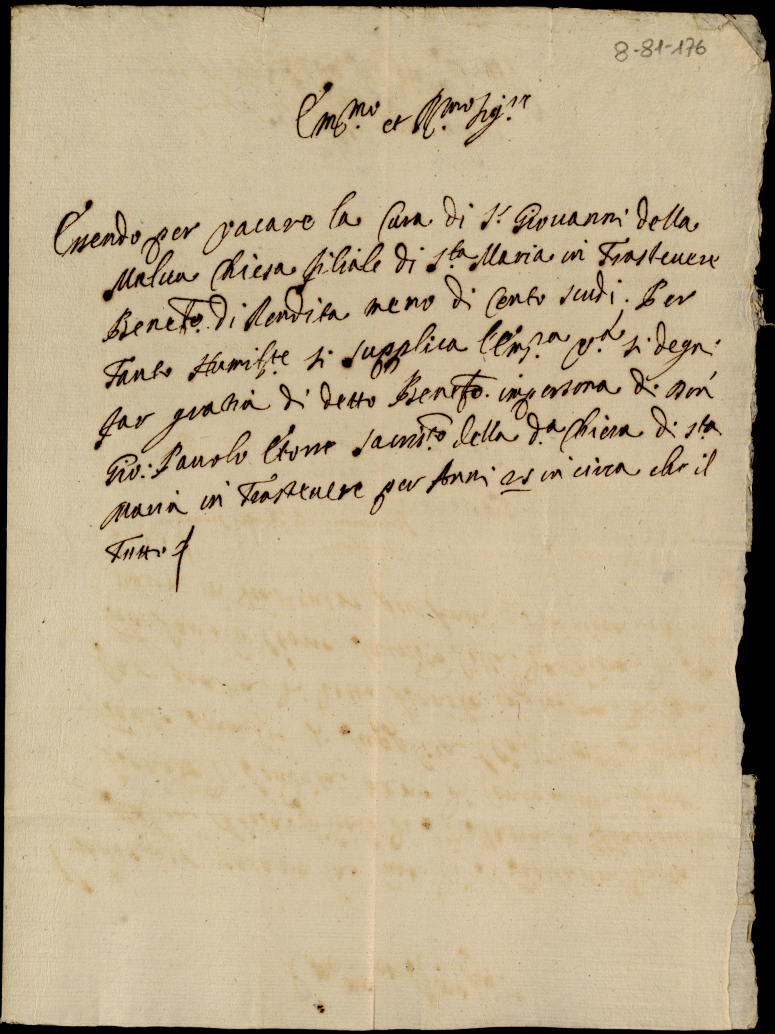 8-81-176
Em.mo et R.mo Sig.re
Essendo per vacare la Cura di S. Giouanni della
Malua Chiesa filiale di S.ta Maria in Trasteuere
Benef.o di Rendita meno di Cento scudi. Per
Tanto Humilte si supplica l'Em.za V.a si degni
far gratia di detto Benef.o in persona di Don
Gio: Pauolo Etorre Sacristo della d.a Chiesa di S.ta
Maria in Trasteuere per Anni 25 in circa che il
Tutto